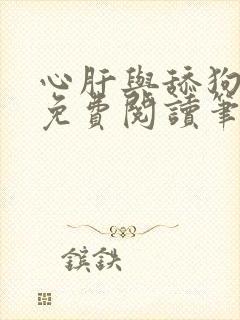 心肝與舔狗
免費閱讀筆
鑌鉄